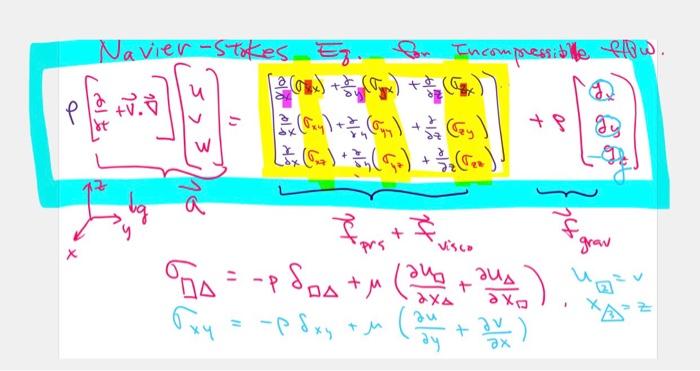 Navier-Stokes Eq. for Incompressible flow.
ρ [∂/∂t + V⃗.∇⃗] [u v w] = [∂/∂x(σxx) + ∂/∂y(σyx) + ∂/∂z(σzx)
∂/∂x(σxy) + ∂/∂y(σyy) + ∂/∂z(σzy)
∂/∂x(σxz) + ∂/∂y(σyz) + ∂/∂z(σzz)] + ρ [gx gy -gz]
z ↓g a⃗
y x
f⃗prs + f⃗visco f⃗grav
σ□Δ = -p δ□Δ + μ (∂u□/∂xΔ + ∂uΔ/∂x□). u[2] = v
σxy = -p δxy + μ (∂u/∂y + ∂v/∂x) xΔ3 = z